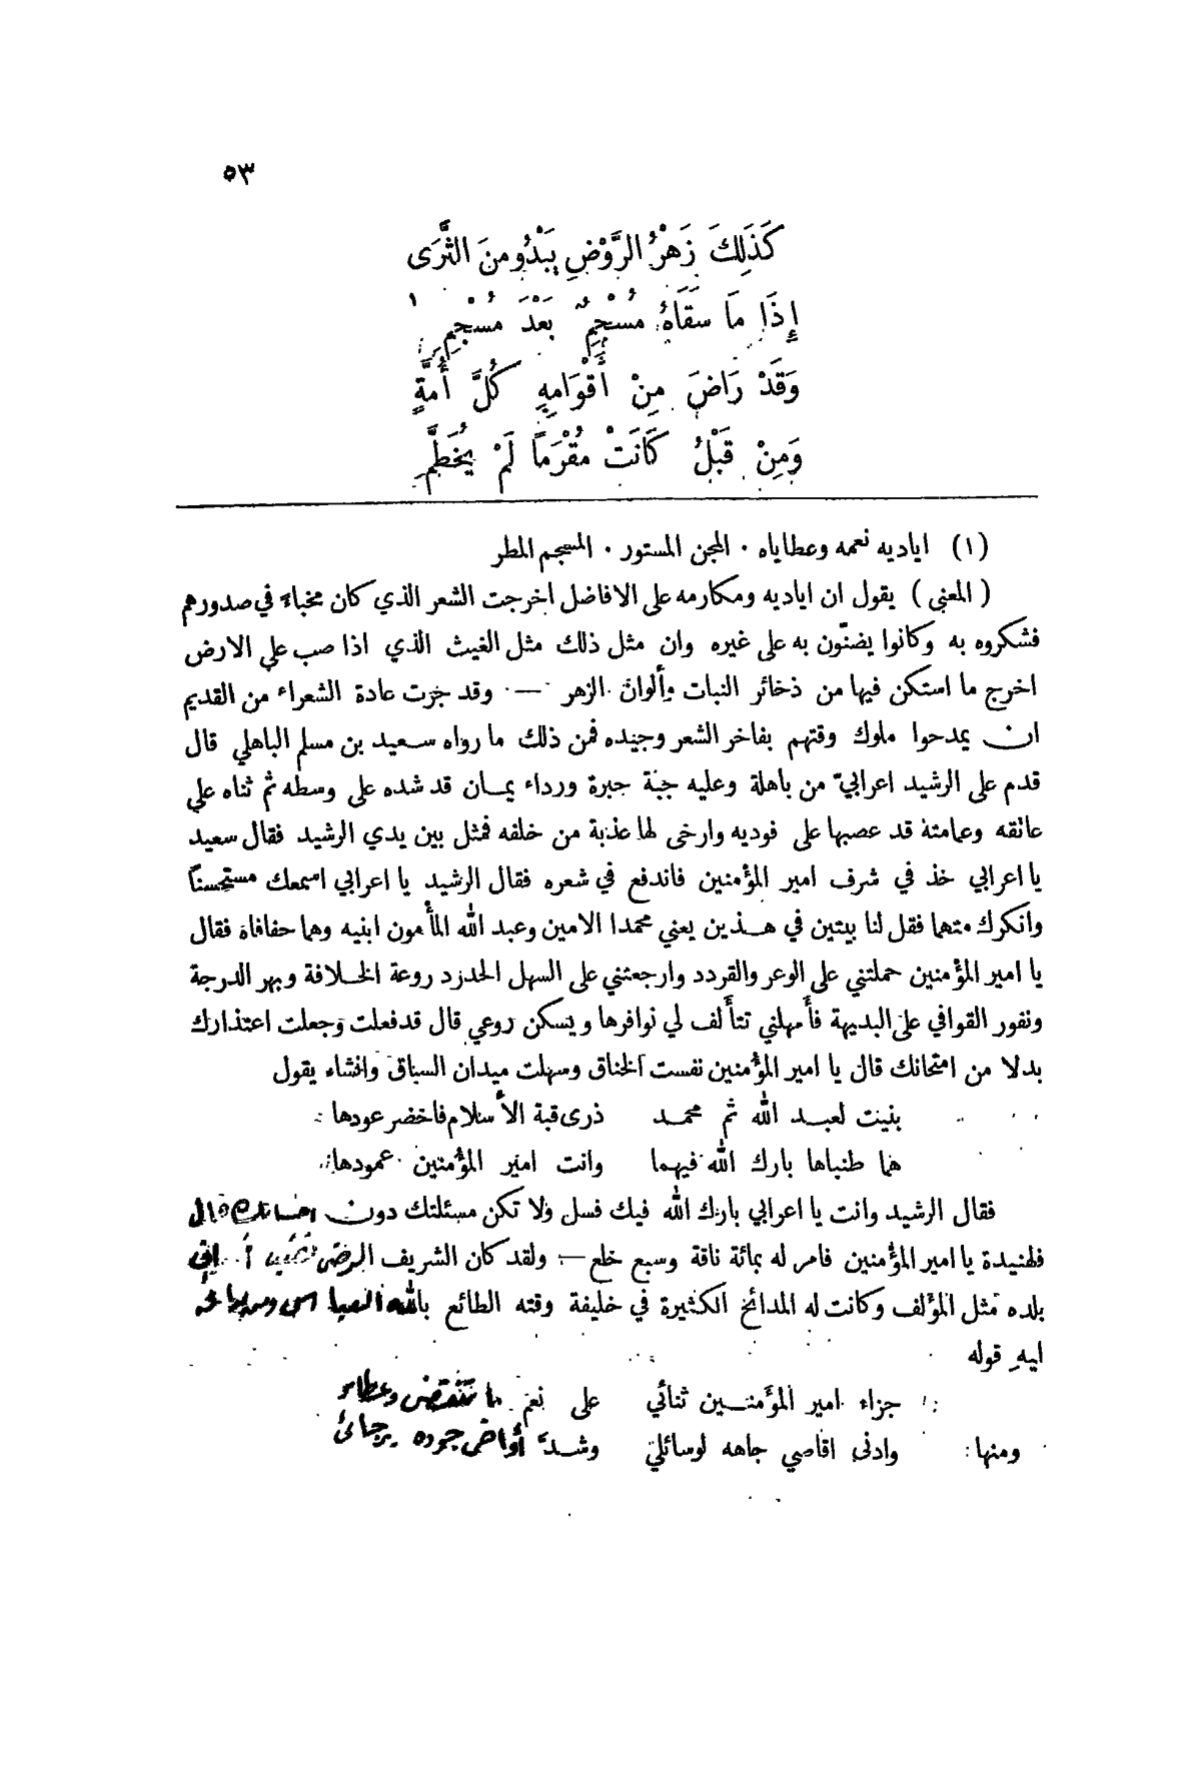 ٥٣
كَذَلِكَ زَهْرُ الرَّوْضِ يَبْدُو مِنَ الثَّرَى
إِذَا مَا سَقَاهُ مُسْجِمٌ بَعْدَ مُسْجِمِ ١
وَقَدْ رَاضَ مِنْ أَقْوَامِهِ كُلَّ أُمَّةٍ
وَمِنْ قَبْلُ كَانَتْ مُقْرَمًا لَمْ يُخَطَّمِ
(١) اياديه نعمه وعطاياه . المجن المستور . المسجم المطر
( المعنى ) يقول ان اياديه ومكارمه على الافاضل اخرجت الشعر الذي كان مخباءً في صدورهم
فشكروه به وكانوا يضنّون به على غيره وان مثل ذلك مثل الغيث الذي اذا صب علي الارض
اخرج ما استكن فيها من ذخائر النبات وألوان الزهر — وقد جرت عادة الشعراء من القديم
ان يمدحوا ملوك وقتهم بفاخر الشعر وجيده فمن ذلك ما رواه سعيد بن مسلم الباهلي قال
قدم على الرشيد اعرابيّ من باهلة وعليه جبة حبرة ورداء يمان قد شده على وسطه ثم ثناه علي
عاتقه وعمامته قد عصبها على فوديه وارخى لها عذبة من خلفه فمثل بين يدي الرشيد فقال سعيد
يا اعرابي خذ في شرف امير المؤمنين فاندفع في شعره فقال الرشيد يا اعرابي اسمعك مستحسناً
وانكرك متهما فقل لنا بيتين في هذين يعني محمدا الامين وعبد الله المأمون ابنيه وهما حفافاه فقال
يا امير المؤمنين حملتني على الوعر والقردد وارجعتني على السهل الحدزد روعة الخلافة وبهر الدرجة
ونفور القوافي على البديهة فأمهلني تتألف لي نوافرها ويسكن روعي قال قد فعلت وجعلت اعتذارك
بدلا من امتحانك قال يا امير المؤمنين نفست الخناق وسهلت ميدان السباق وانشاء يقول
بنيت لعبد الله ثم محمد ذرى قبة الأسلام فاخضر عودها
هما طنباها بارك الله فيهما وانت امير المؤمنين عمودها
فقال الرشيد وانت يا اعرابي بارك الله فيك فسل ولا تكن مسئلتك دون احسانك قال
فلهنيدة يا امير المؤمنين فامر له بمائة ناقة وسبع خلع — ولقد كان الشريف الرضى
بلده مثل المؤلف وكانت له المدائح الكثيرة في خليفة وقته الطائع بالله
اليهِ قوله
جزاء امير المؤمنين ثنائي على نعم ما تنقضى وعطاء
ومنها : وادنى اقاصي جاهه لوسائلي وشد أواخى جوده برجائى